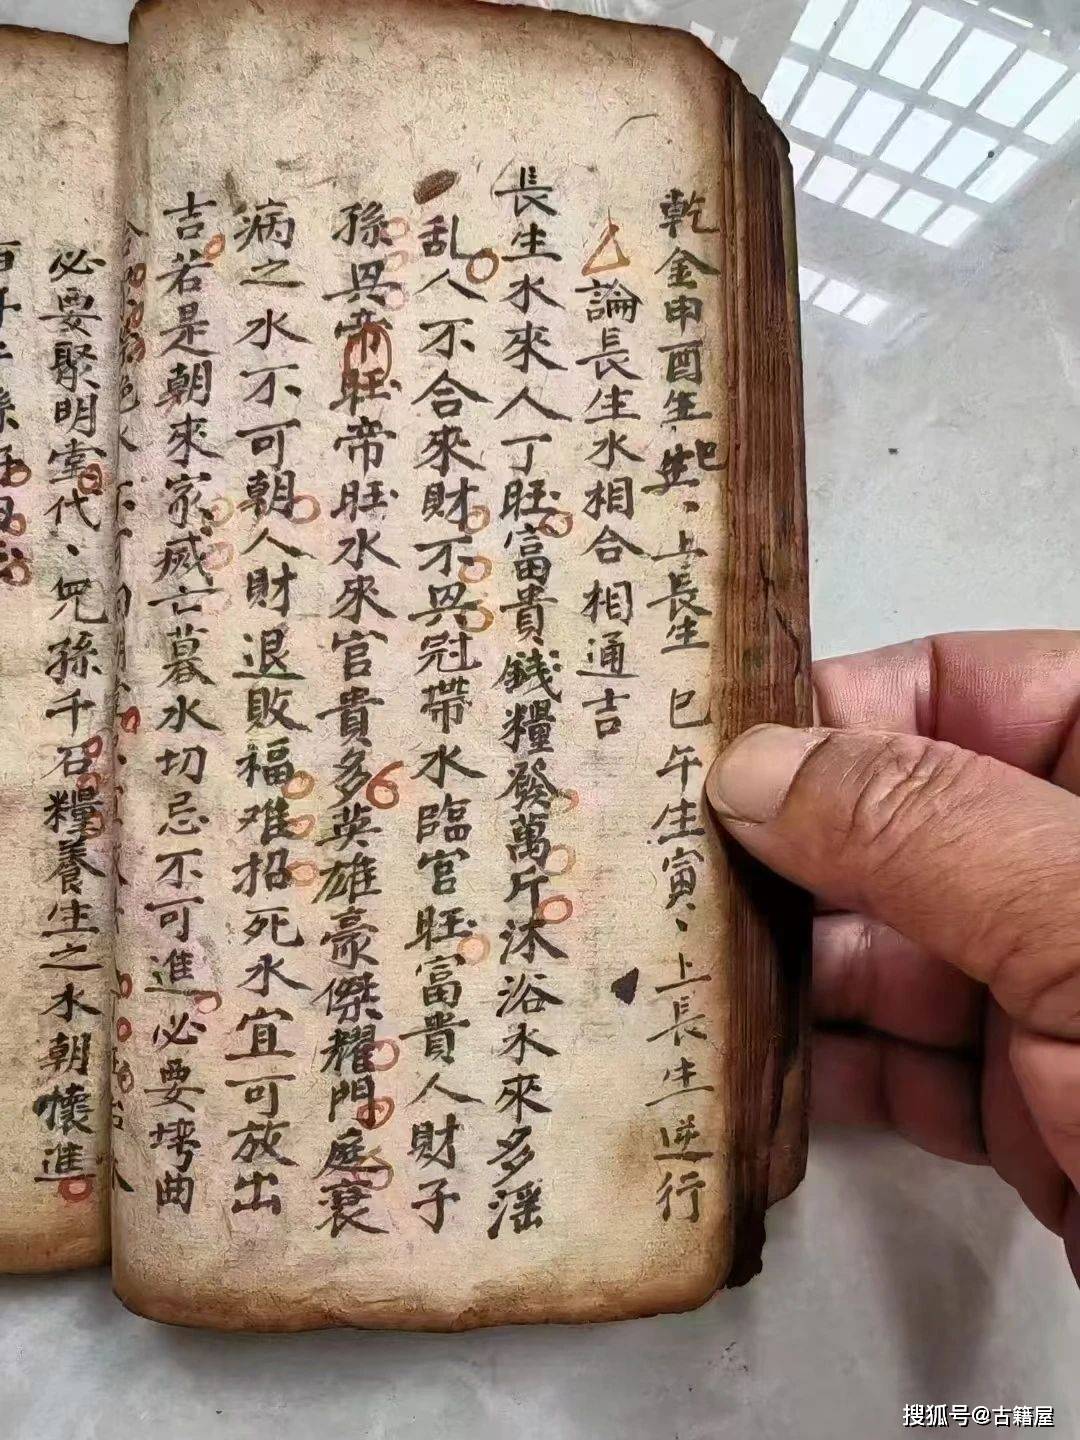 乾金申酉生巳、上長生 巳午生寅、上長生逆行
論長生水相合相通吉
長生水來人丁旺富貴錢糧發萬斤沐浴水來多淫
乱人不合來財不畏冠帶水臨官旺富貴人財子
孫畏帝旺帝旺水來官貴多英雄豪傑耀門庭衰
病之水不可朝人財退敗福难招死水宜可放出
吉若是朝來家滅亡墓水切忌不可進必要塆曲
必要聚明堂代、児孫千石糧養生之水朝懷進
搜狐号@古籍屋